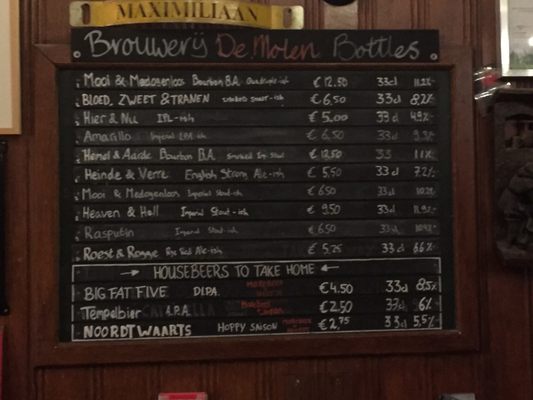 MAXIMILIAAN
Brouwerij De Molen Bottles
Mooi & Medogenloos Bourbon B.A. Quadrupel-ish €12.50 33cl 11.2%
BLOED, ZWEET & TRANEN SMOKED STOUT-ISH €6,50 33cl 8,2%
Hier & Nu IPL-ish €5.00 33cl 4.9%
Amarillo Imperial I.P.A-ish €6,50 33cl 9.2%
Hemel & Aarde Bourbon B.A. Smoked Imp. Stout €12,50 33 11%
Heinde & Verre English Strong Ale-ish €5,50 33cl 7.2%
Mooi & Medogenloos Imperial Stout-ish €6,50 33cl 10.2%
Heaven & Hell Imperial Stout-ish €9,50 33cl 11.9%
Rasputin Imperial Stout-ish €6,50 33cl
Roest & Rogge Rye Ale-ish €5,75 33cl 6.6%
→ HOUSEBEERS TO TAKE HOME ←
BIG FAT FIVE D.I.P.A. €4.50 33cl 8,5%
Tempelbier A.P.A. €2,50 33cl 6%
NOORDTWAARTS HOPPY SAISON €2,75 33cl 5,5%